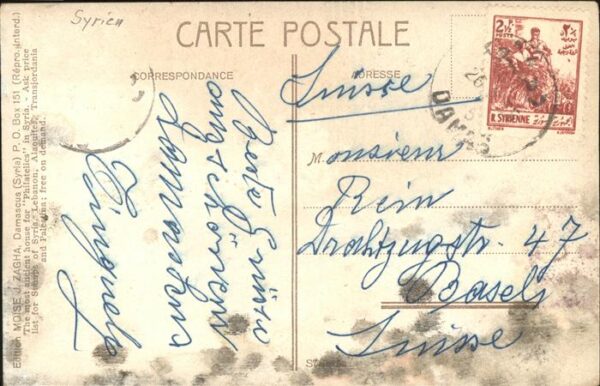 Syrien
CARTE POSTALE
CORRESPONDANCE
ADRESSE
Edition MOISE J. ZAGHA, Damascus (Syria) P. O. Box 151 (Repro. interd.)
The most ancient house for "Philatelics" in Syria. - Ask price
list for Stamps of Syria, Lebanon, Alaouites, Transjordania
and Palestine; free on demand.
Beste Grüsse
schönen
2½ P.
POSTE
R. SYRIENNE
DAMAS
Suisse
Monsieur
Rein
Drahtzugstr. 47
Basel
Suisse